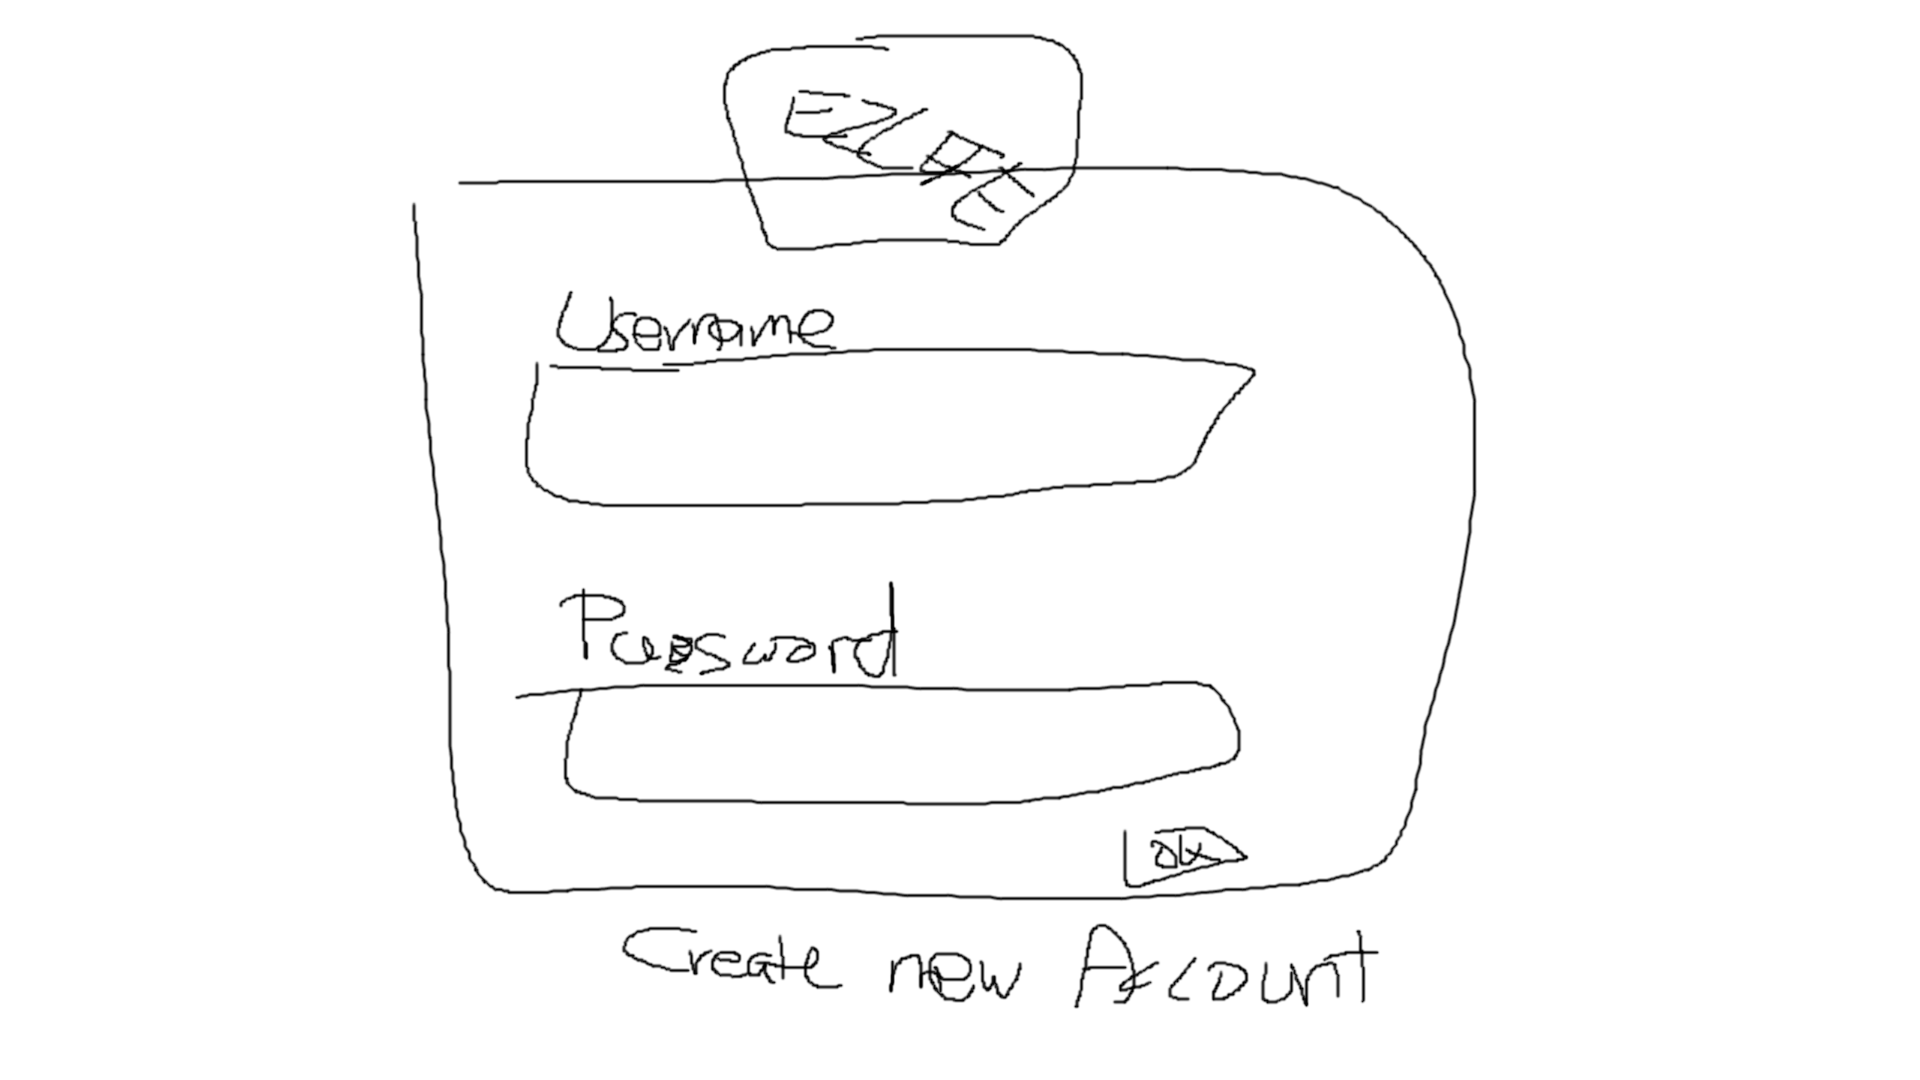 Username
Password
ok
Create new Account